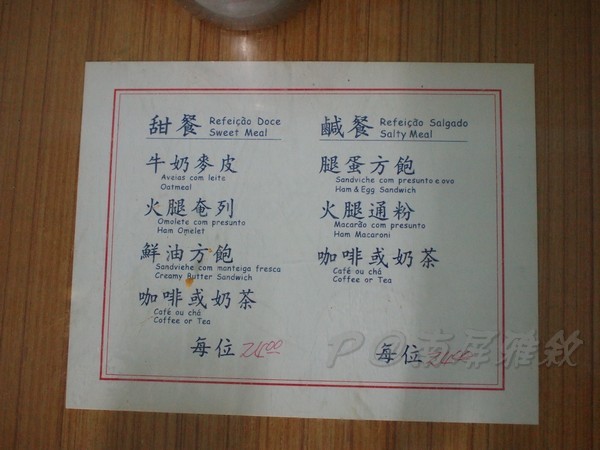 甜餐 Refeição Doce
Sweet Meal
牛奶麥皮
Aveias com leite
Oatmeal
火腿奄列
Omolete com presunto
Ham Omelet
鮮油方飽
Sandviche com manteiga fresca
Creamy Butter Sandwich
咖啡或奶茶
Café ou chá
Coffee or Tea
每位 24.00
鹹餐 Refeição Salgado
Salty Meal
腿蛋方飽
Sandviche com presunto e ovo
Ham & Egg Sandwich
火腿通粉
Macarão com presunto
Ham Macaroni
咖啡或奶茶
Café ou chá
Coffee or Tea
每位 24.00
P@南屏雅敘